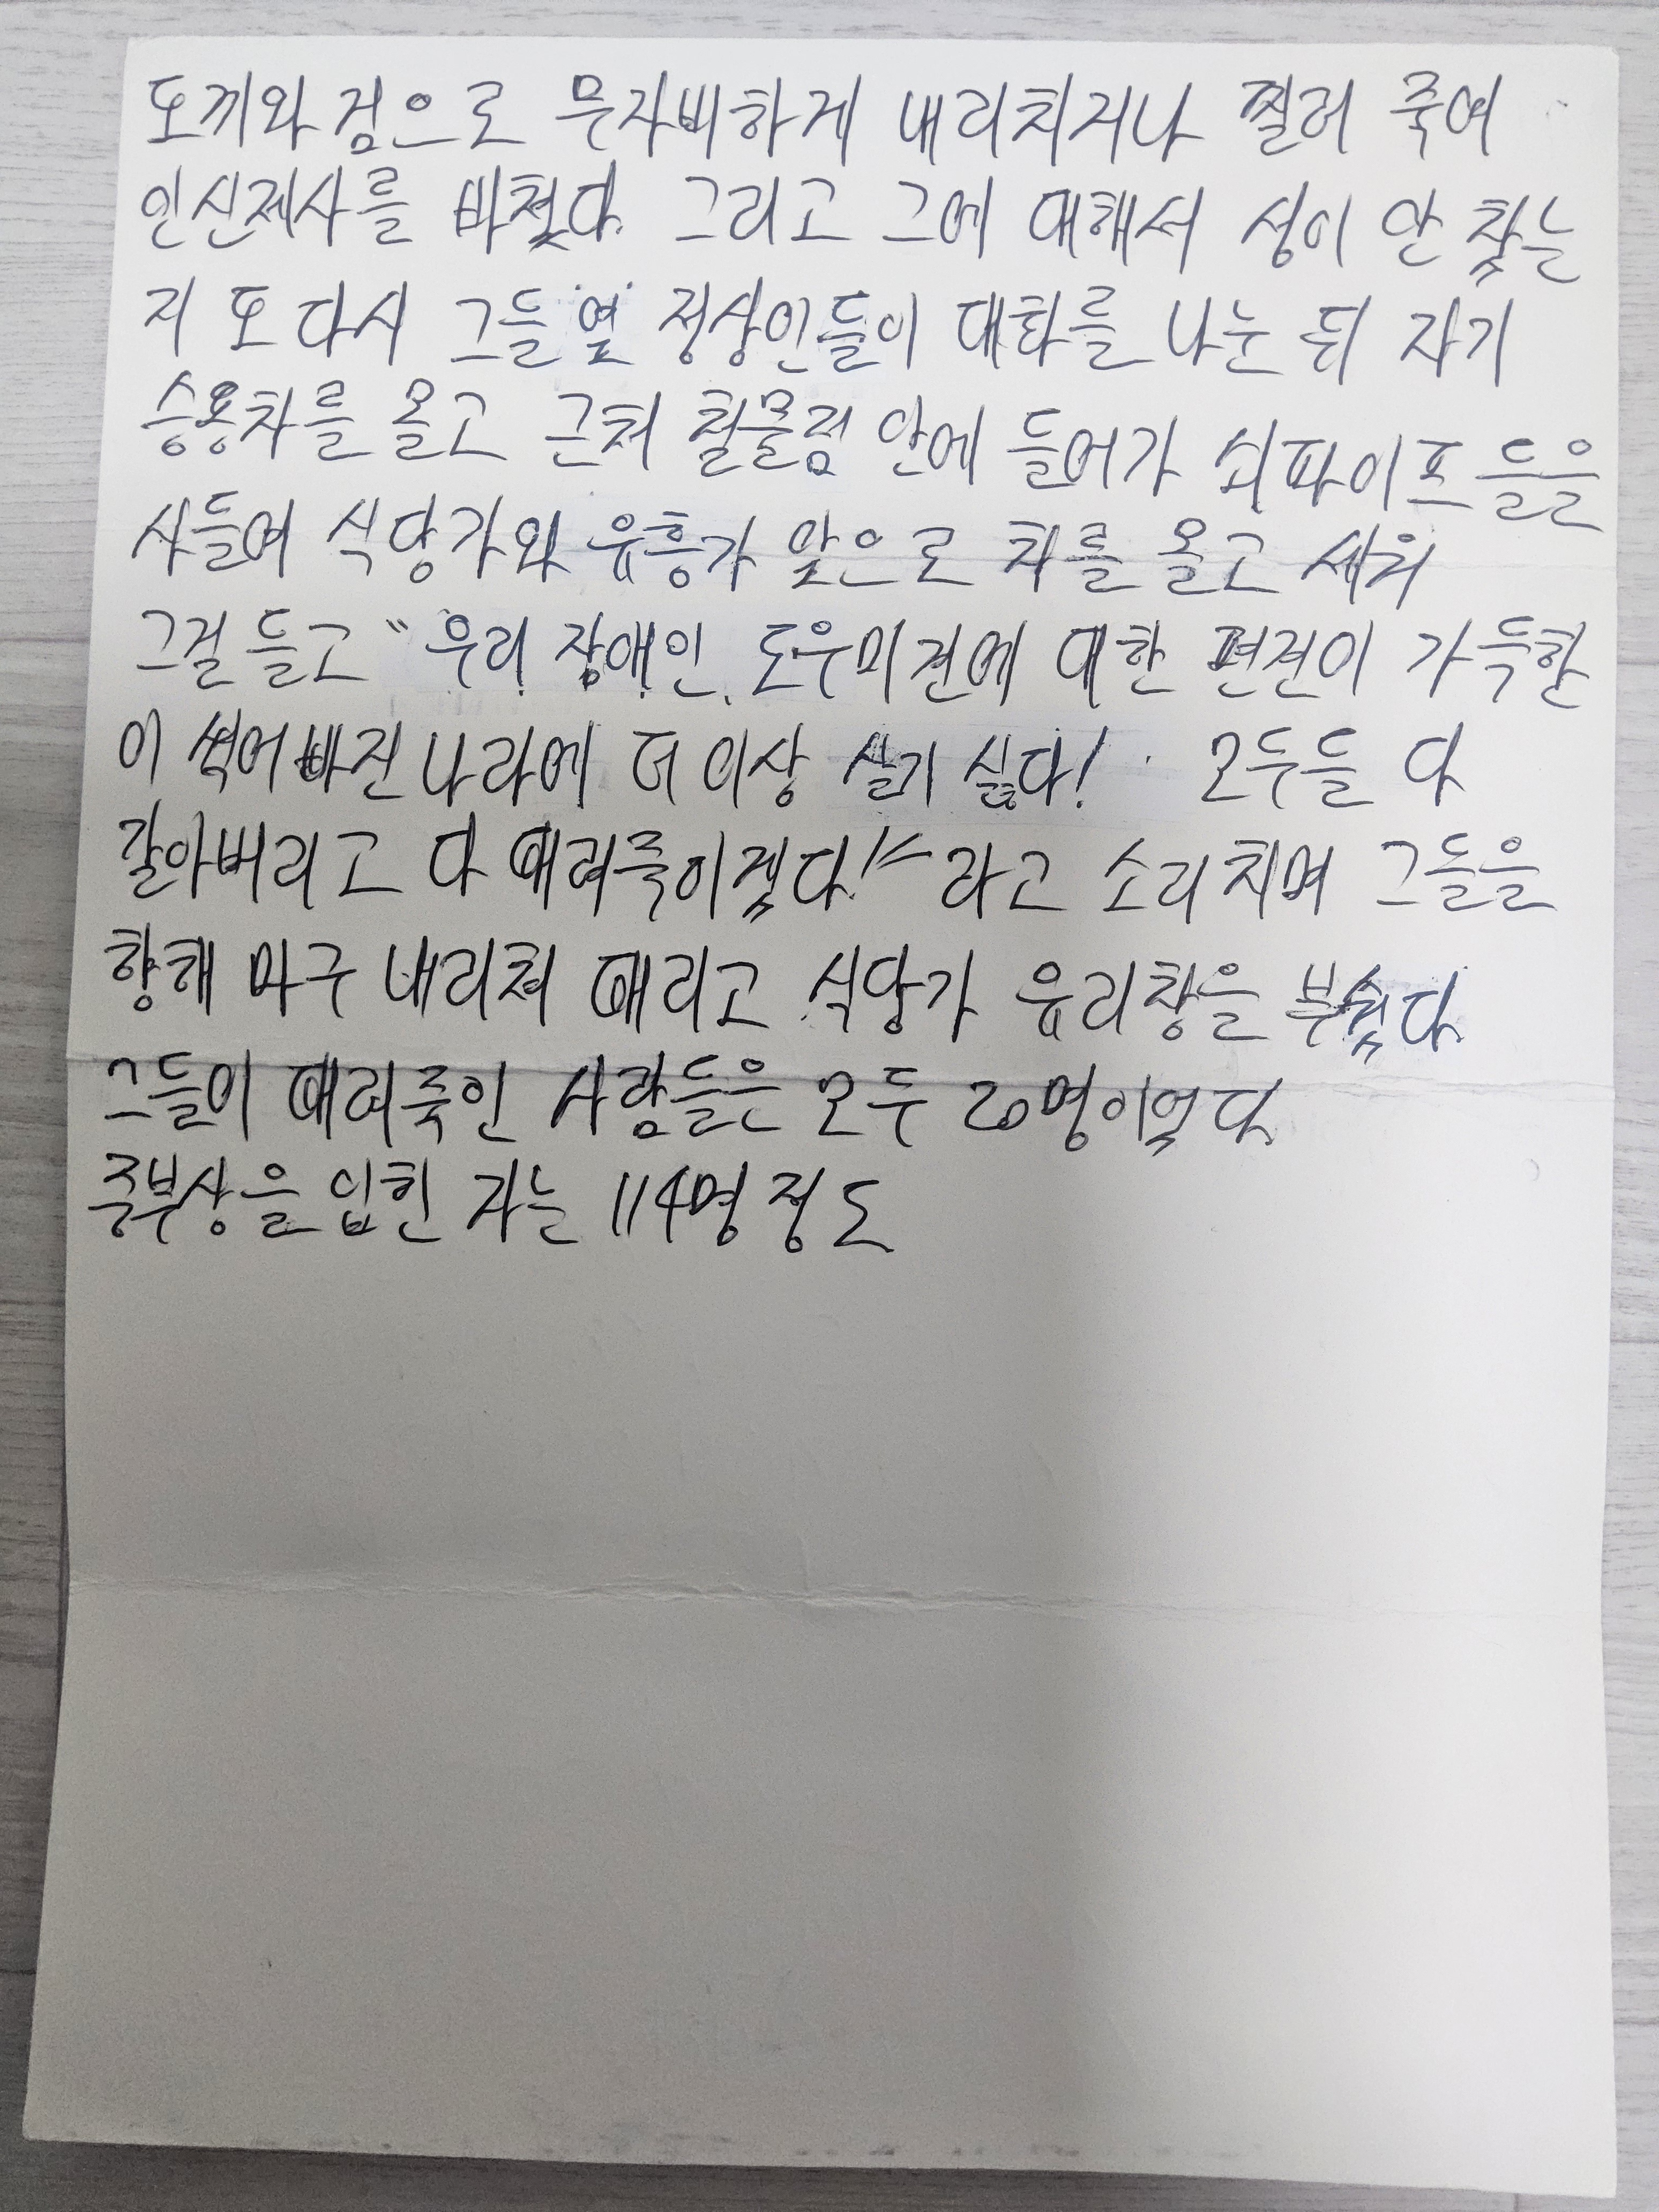 도끼와 검으로 무자비하게 내리치거나 찔러 죽여
인신제사를 바쳤다. 그리고 그에 대해서 성이 안 찼는
지 또 다시 그들 옆 정상인들이 대화를 나눈 뒤 자기
승용차를 몰고 근처 철물점 안에 들어가 쇠파이프들을
사들여 식당가와 유흥가 앞으로 차를 몰고 세워
그걸 들고 "우리 장애인, 도우미견에 대한 편견이 가득한
이 썩어빠진 나라에 더 이상 살기 싫다! 모두들 다
갈아버리고 다 때려죽이겠다!" 라고 소리치며 그들을
향해 마구 내리쳐 때리고 식당가 유리창을 부쉈다.
그들이 때려죽인 사람들은 모두 20명이었다.
중부상을 입힌 자는 114명 정도